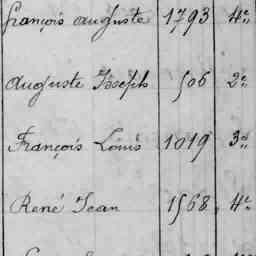 françois auguste 1793 4e
auguste Joseph 506 2e
François Louis 1019 3e
René Jean 1568 4e